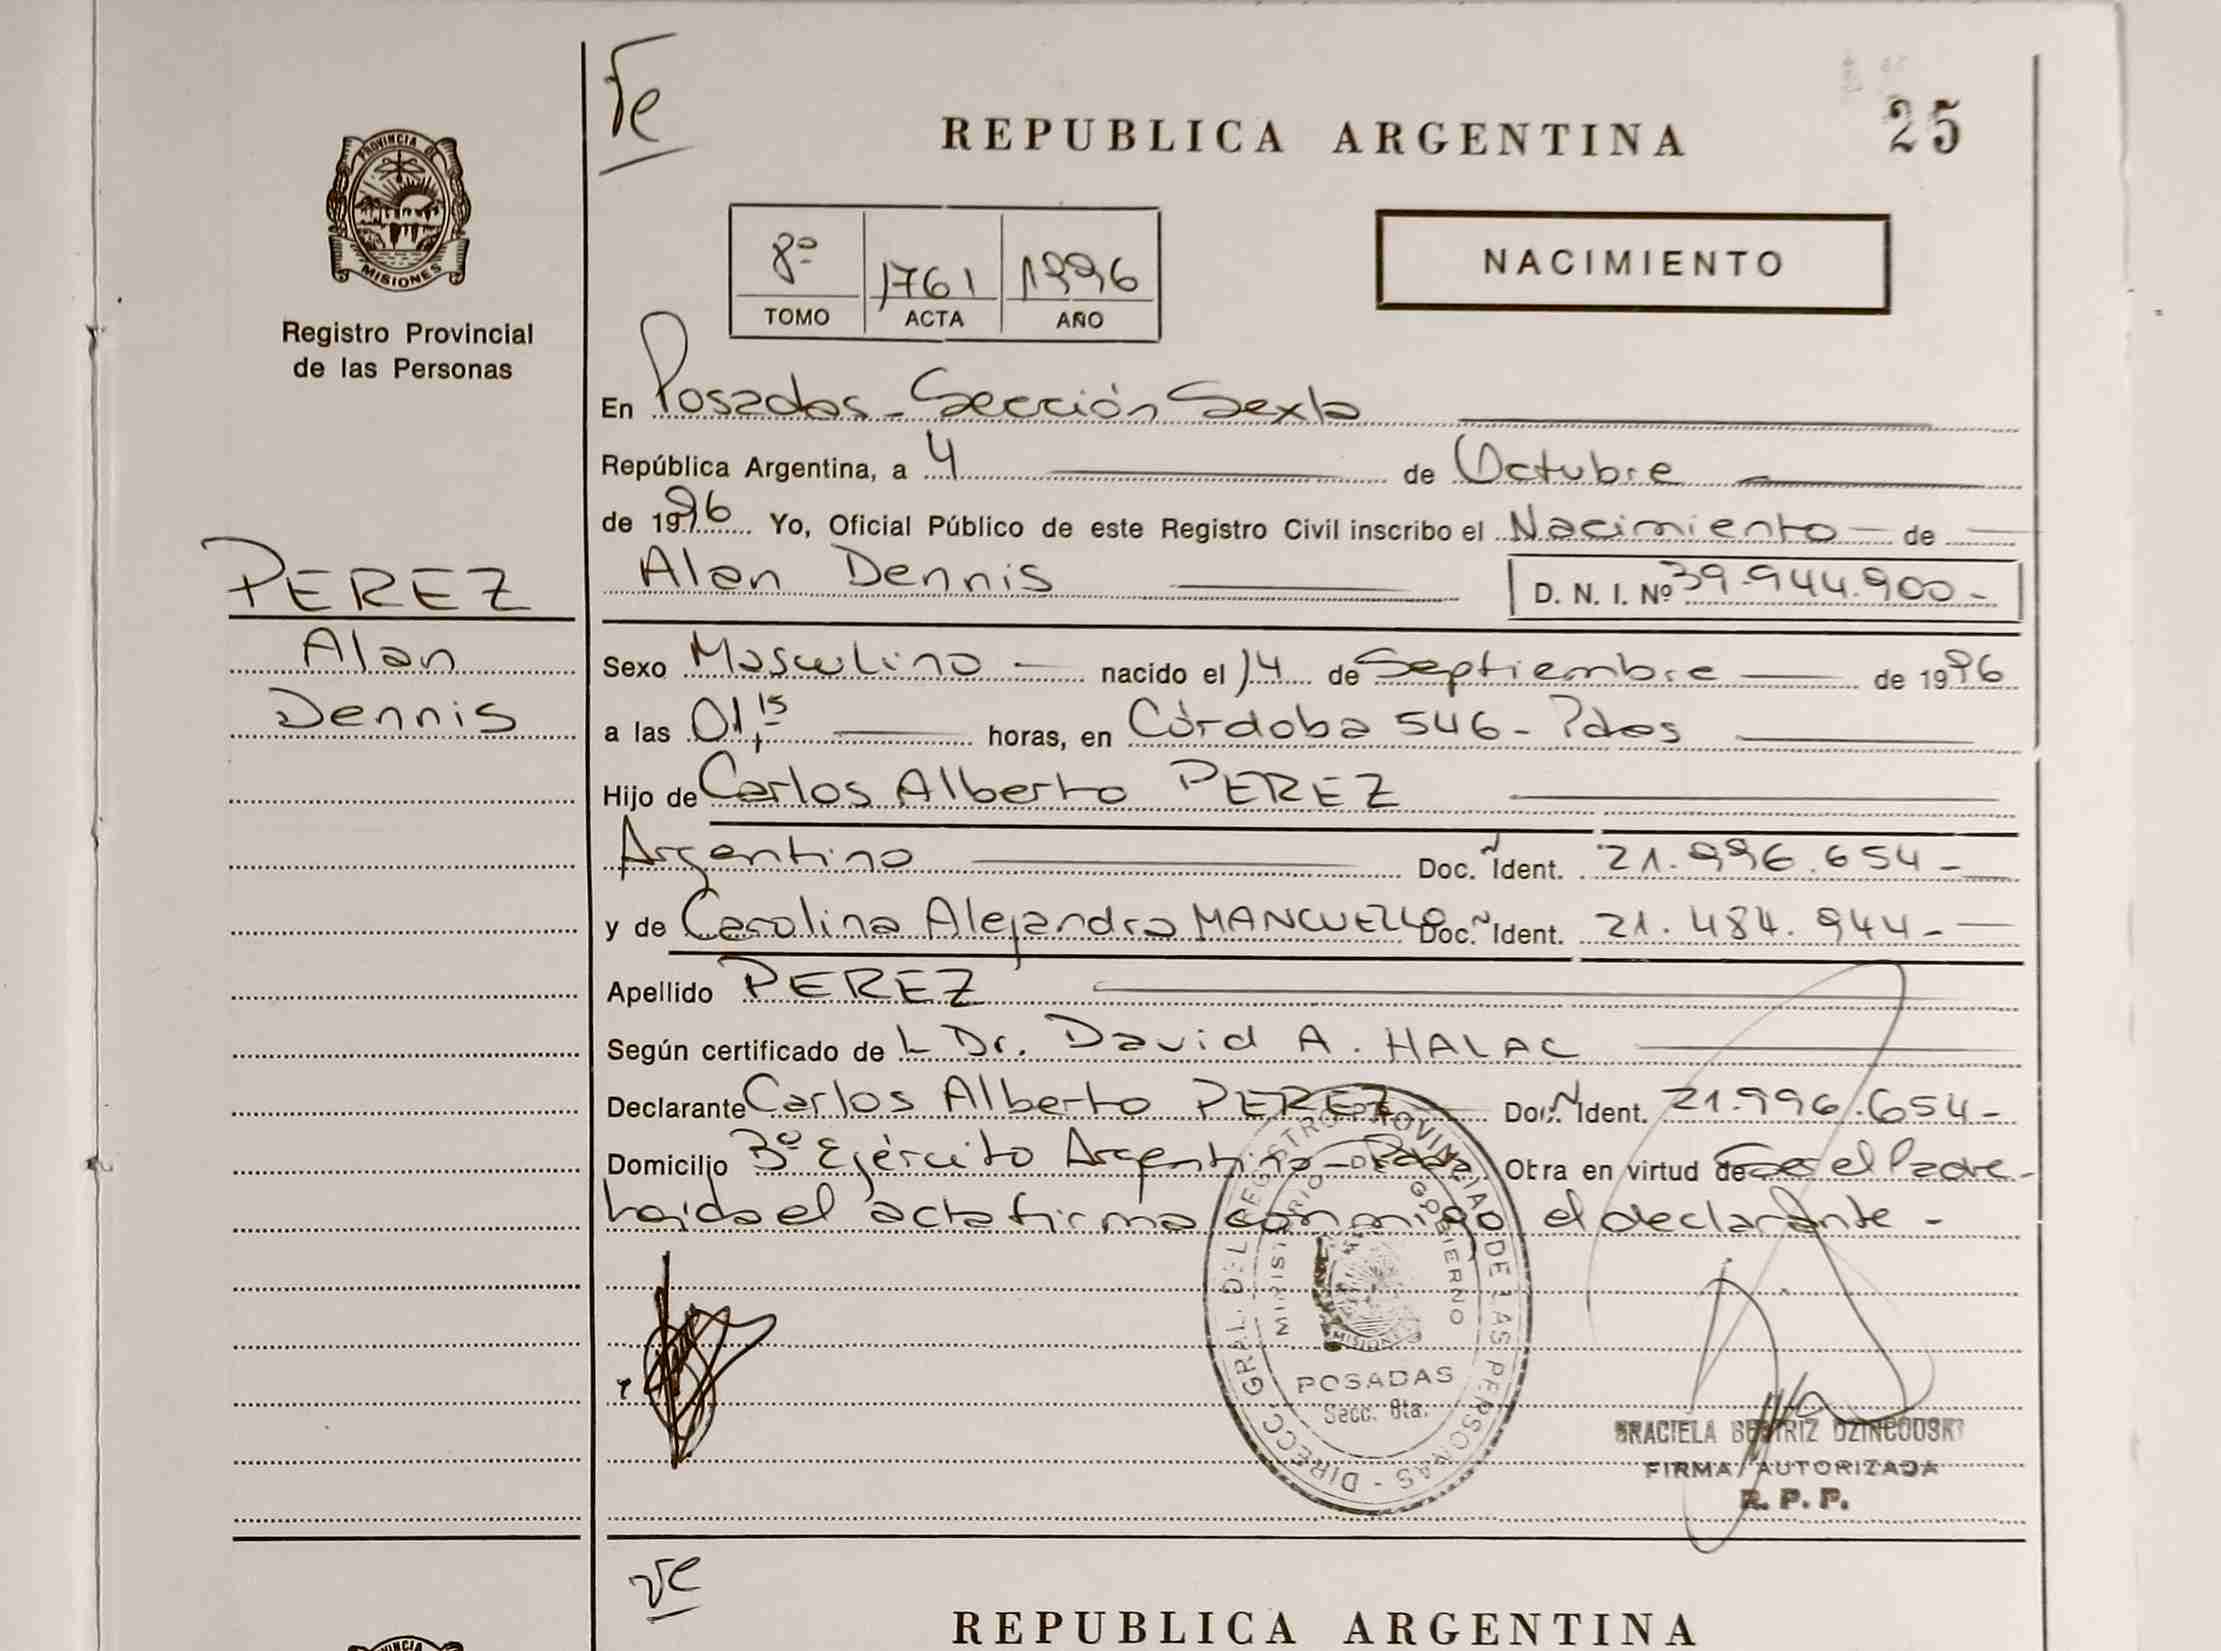 Te
REPUBLICA ARGENTINA
25
PROVINCIA DE
MISIONES
Registro Provincial
de las Personas
8º 1761 1996
TOMO ACTA AÑO
NACIMIENTO
En Posadas - Sección Sexta
República Argentina, a 4 de Octubre
de 1996 Yo, Oficial Público de este Registro Civil inscribo el Nacimiento de
Alan Dennis D. N. I. Nº 39.944.900-
PEREZ
Alan
Dennis
Sexo Masculino nacido el 14 de Septiembre de 1996
a las 01,15 horas, en Córdoba 546 - Pdas
Hijo de Carlos Alberto PEREZ
Argentino Doc. Ident. 21.996.654-
y de Carolina Alejandra MANCUELLO Doc. Ident. 21.484.944-
Apellido PEREZ
Según certificado de L Dr. David A. HALAC
Declarante Carlos Alberto PEREZ Doc. Ident. 21.996.654-
Domicilio 3º Ejército Argentino - Pdas Obra en virtud de Ser el Padre -
Leida el acta firma conmigo el declarante -
DIRECC. GRAL. DEL REGISTRO PROVINCIAL DE LAS PERSONAS -
MINISTERIO DE GOBIERNO
MISIONES
POSADAS
Secc. 6ta.
GRACIELA BEATRIZ DZINCOUSKI
FIRMA AUTORIZADA
R. P. P.
ve
REPUBLICA ARGENTINA